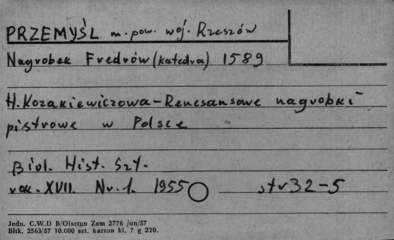 PRZEMYŚL m. pow. wój. Rzeszów
Nagrobek Fredrów (katedra) 1589
H. Kozakiewiczowa - Renesansowe nagrobki
piętrowe w Polsce
Biul. Hist. Szt.
rok. XVII. Nr. 1. 1955 str 32-5
Jedn. C.W.D B/Olsztyn Zam 2776 /on/57
Bltk. 2563/57 10.000 szt. karton kl. 7 g 220.